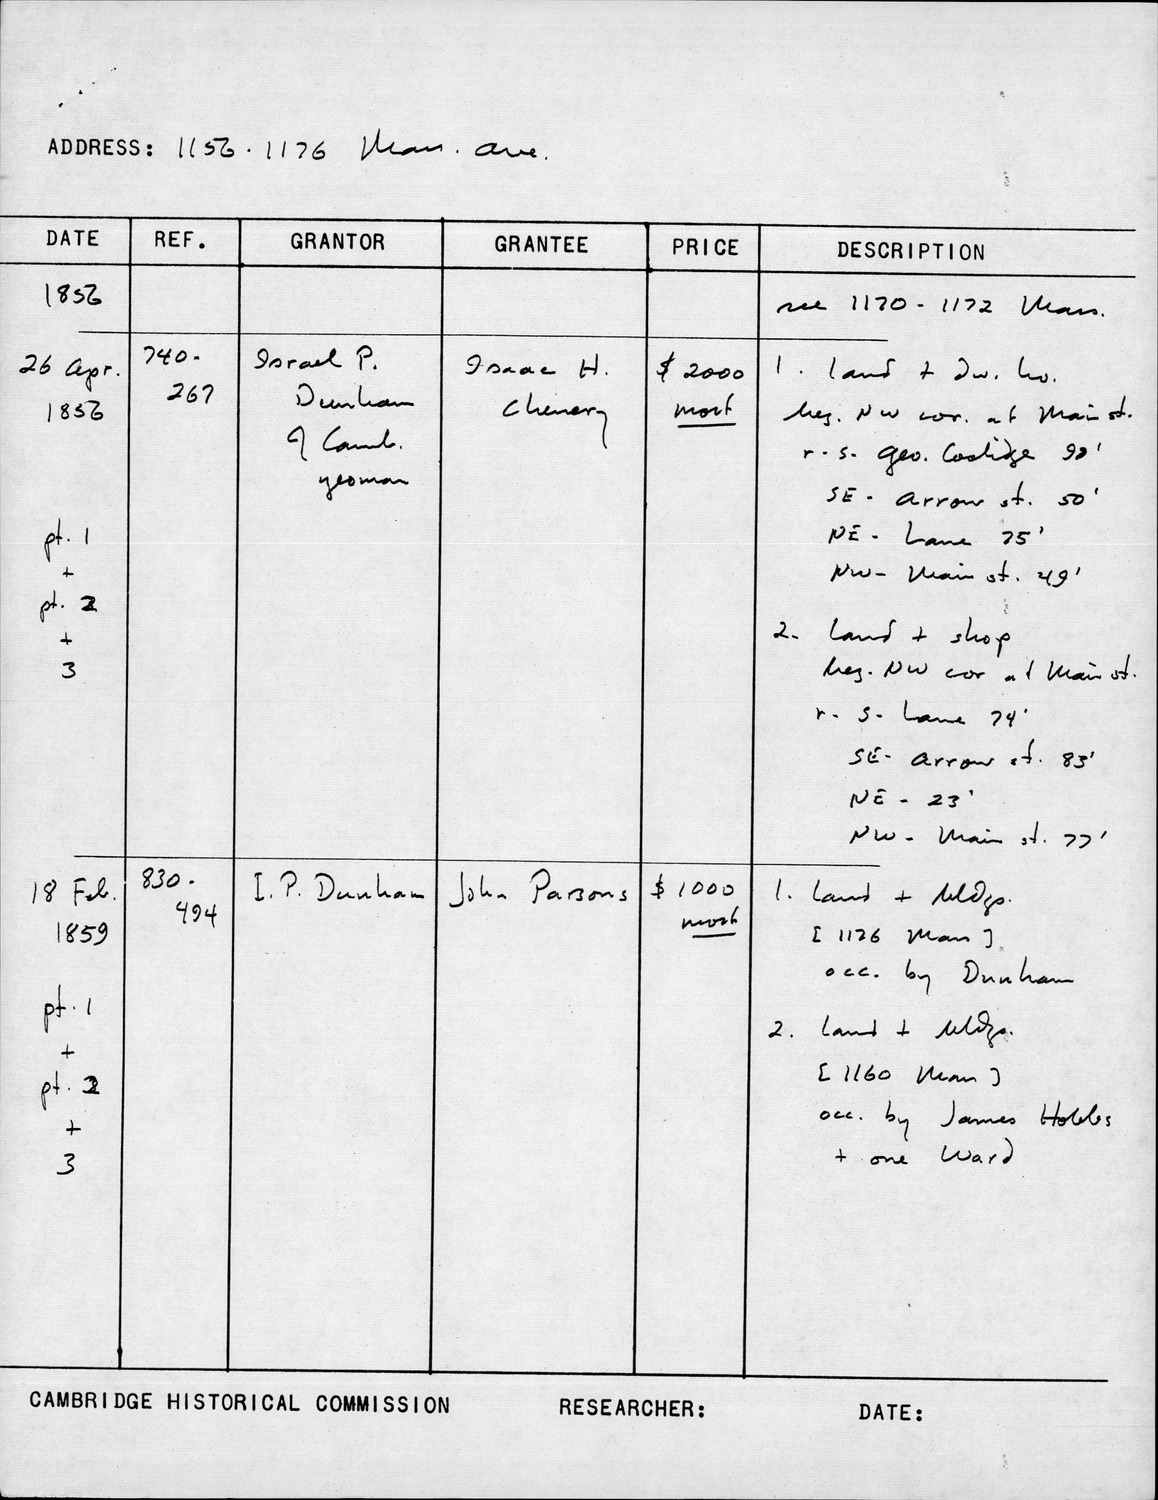 ADDRESS: 1156-1176 Mass. Ave.
DATE REF. GRANTOR GRANTEE PRICE DESCRIPTION
1856 see 1170-1172 Mass.
26 Apr. 1856
740-267
Israel P.
Dunham
of Camb.
yeoman
Isaac H.
Chenery
$2000
mort
1. land + dw. ho.
beg. NW cor. at Main st.
r. s. Geo. Coolidge 90'
SE - Arrow st. 50'
NE - Lane 75'
NW - Main st. 49'
2. land + shop
beg. NW cor at Main st.
r - s - Lane 74'
SE - Arrow st. 83'
NE - 23'
NW - Main st. 77'
pt. 1
+
pt. 2
+
3
18 Feb.
1859
830-
494
I. P. Dunham
John Parsons
$1000
mort
1. land + bldgs.
[1176 Mass]
occ. by Dunham
2. land + bldgs.
[1160 Mass]
occ. by James Hobbs
+ one Ward
pt. 1
+
pt. 2
+
3
CAMBRIDGE HISTORICAL COMMISSION RESEARCHER: DATE: